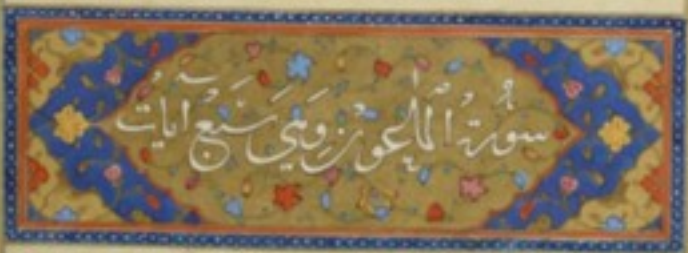 سورة الماعون وهي سبع آيات